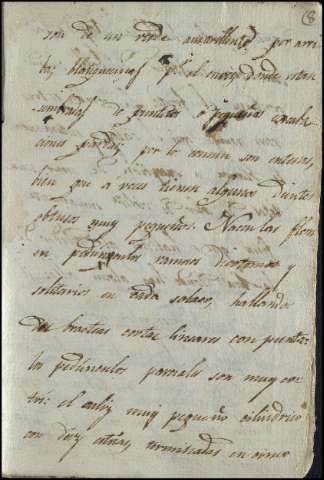 8
son de un verde amarillento por arri-
ba, blanquecinas por el enves, donde estan
sembradas de puntitos ó pequeñas
ciones por lo comun son enteras,
bien que a veces tienen algunos dientes
obtusos muy pequeños. Nacen las flores
en pedunculos ramosos dicotomos y
solitarios en cada sobaco, hallando
bracteas cortas lineares con puntas:
los pedunculos parciales son muy cor-
tos: el caliz muy pequeño cilindrico
con diez estrias, terminadas en cinco